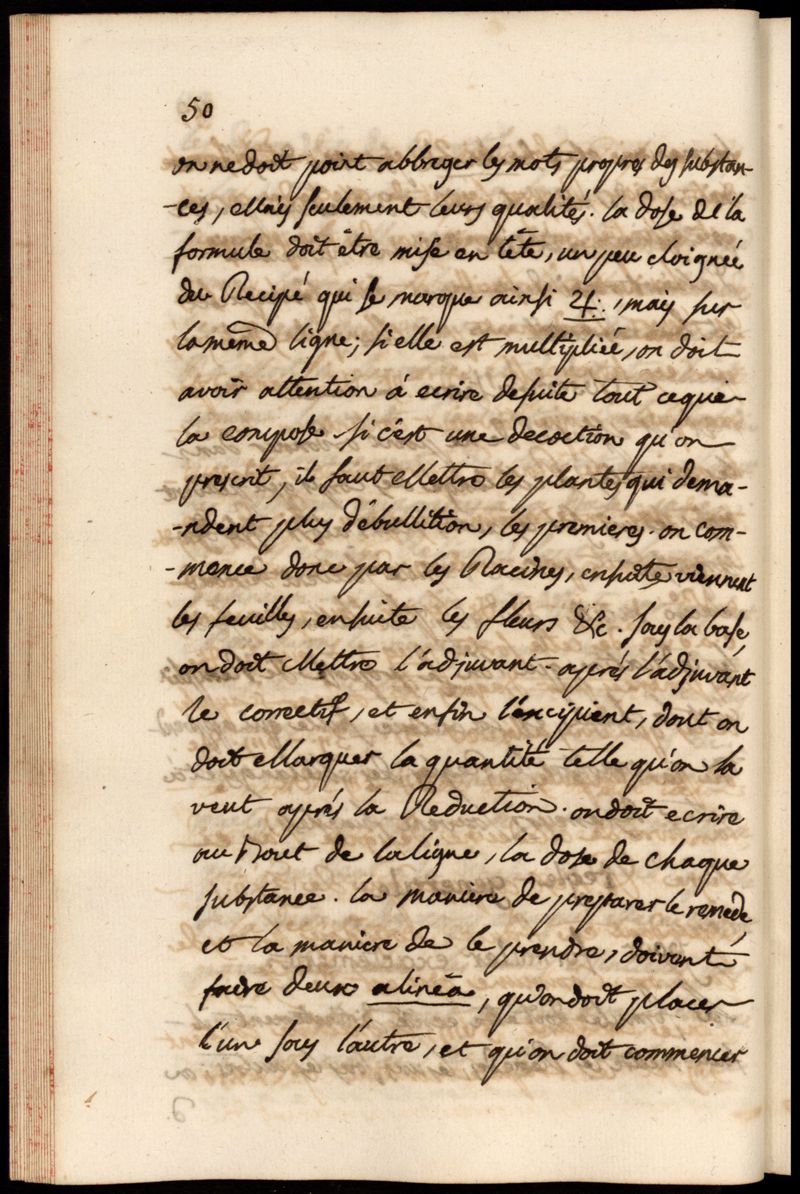 50
on ne doit point abbreger les mots propres des substan-
-ces, Mais seulement leurs qualités. la dose de la
formule doit être mise en tête, un peu eloignée
du Recipé qui se marque ainsi ♃., mais sur
la même ligne; si elle est multipliée, on doit
avoir attention á ecrire desuite tout ce qui
la compose. si c'est une decoction qu'on
prescrit, il faut Mettre les plantes qui dema-
-ndent plus d'ébullition, les premieres. on com-
-mence donc par les Racines, ensuite viennent
les feuilles, ensuite les fleurs &c. sous la base,
on doit Mettre l'adjuvant. aprés l'adjuvant
le correctif, et enfin l'excipient, dont on
doit Marquer la quantité telle qu'on la
veut aprés la Reduction. on doit ecrire
au bout de la ligne, la dose de chaque
substance. la maniere de preparer le remede,
et la maniere de le prendre, doivent
faire deux alinéa, qu'on doit placer
l'un sous l'autre, et qu'on doit commencer